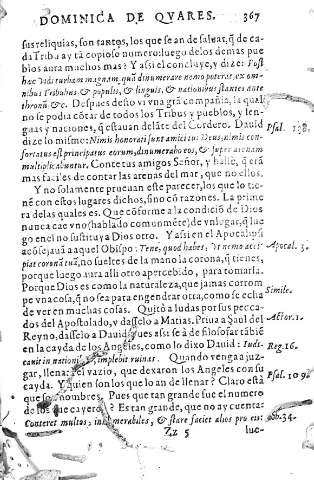 DOMINICA DE QVARES. 367
sus reliquias, son tantos, los que se an de saluar, q̃ de ca-
da Tribu ay tã copioso numero: luego de los demas pue
blos aura muchos mas? Y assi el concluye, y dize: Post
hæc vidi turbam magnam, quã dinumerare nemo poterat, ex om-
nibus Tribubus & populis, & linguis, & nationibus stantes ante
thronũ, &c. Despues desto vi vna grã compañia, la qual
no se podia cõtar de todos los Tribus y pueblos, y len-
guas y naciones, q̃ estauan delãte del Cordero. Dauid
dize lo mismo: Nimis honorati sunt amici tui Deus, nimis con-
Psal. 138.
fortatus est principatus eorum, dinumerabo eos, & super arenam
multiplicabuntur. Conte tus amigos Señor, y hallè, q̃ erã
mas faciles de contar las arenas del mar, que no ellos.
Y no solamente prueuan este parecer, los que lo tie-
nẽ con estos lugares dichos, sino cõ razones. La prime
ra de las quales es. Que cõforme a la condiciõ de Dios
nunca cae vno (hablãdo comunmẽte) de vn lugar, q̃ lue
go en el no sustituya Dios otro. Y assi en el Apocalipsi
acõseja uã a aquel Obispo: Tene, quod habes, vt nemo acci-
Apocal. 3.
piat coronã tuã, no sueltes de la mano la corona, q̃ tienes,
porque luego aura alli otro apercebido, para tomarla.
Porque Dios es como la naturaleza, que jamas corrom
Simile.
pe vna cosa, q̃ no sea para engendrar otra, como se echa
de ver en muchas cosas. Quitò a Iudas por sus pecca-
dos del Apostolado, y dasselo a Matias. Priua a Saul del
Actor. 1.
Reyno, dasselo a Dauid: pues assi se à de filosofar tãbiẽ
en la cayda de los Angeles, como lo dixo Dauid: Iudi-
Reg. 16.
cabit in nationibus, implebit ruinas. Quando venga a juz-
gar, llenarà el vazio, que dexaron los Angeles con su
Psal. 109.
cayda. Y quien son los que lo an de llenar? Claro està
que los hombres. Pues que tan grande fue el numero
de los que cayerõ? Es tan grande, que no ay cuenta:
Conteret multos, innumerabiles, & stare faciet alios pro eis:
Iob. 34.
Zz 5 lue-